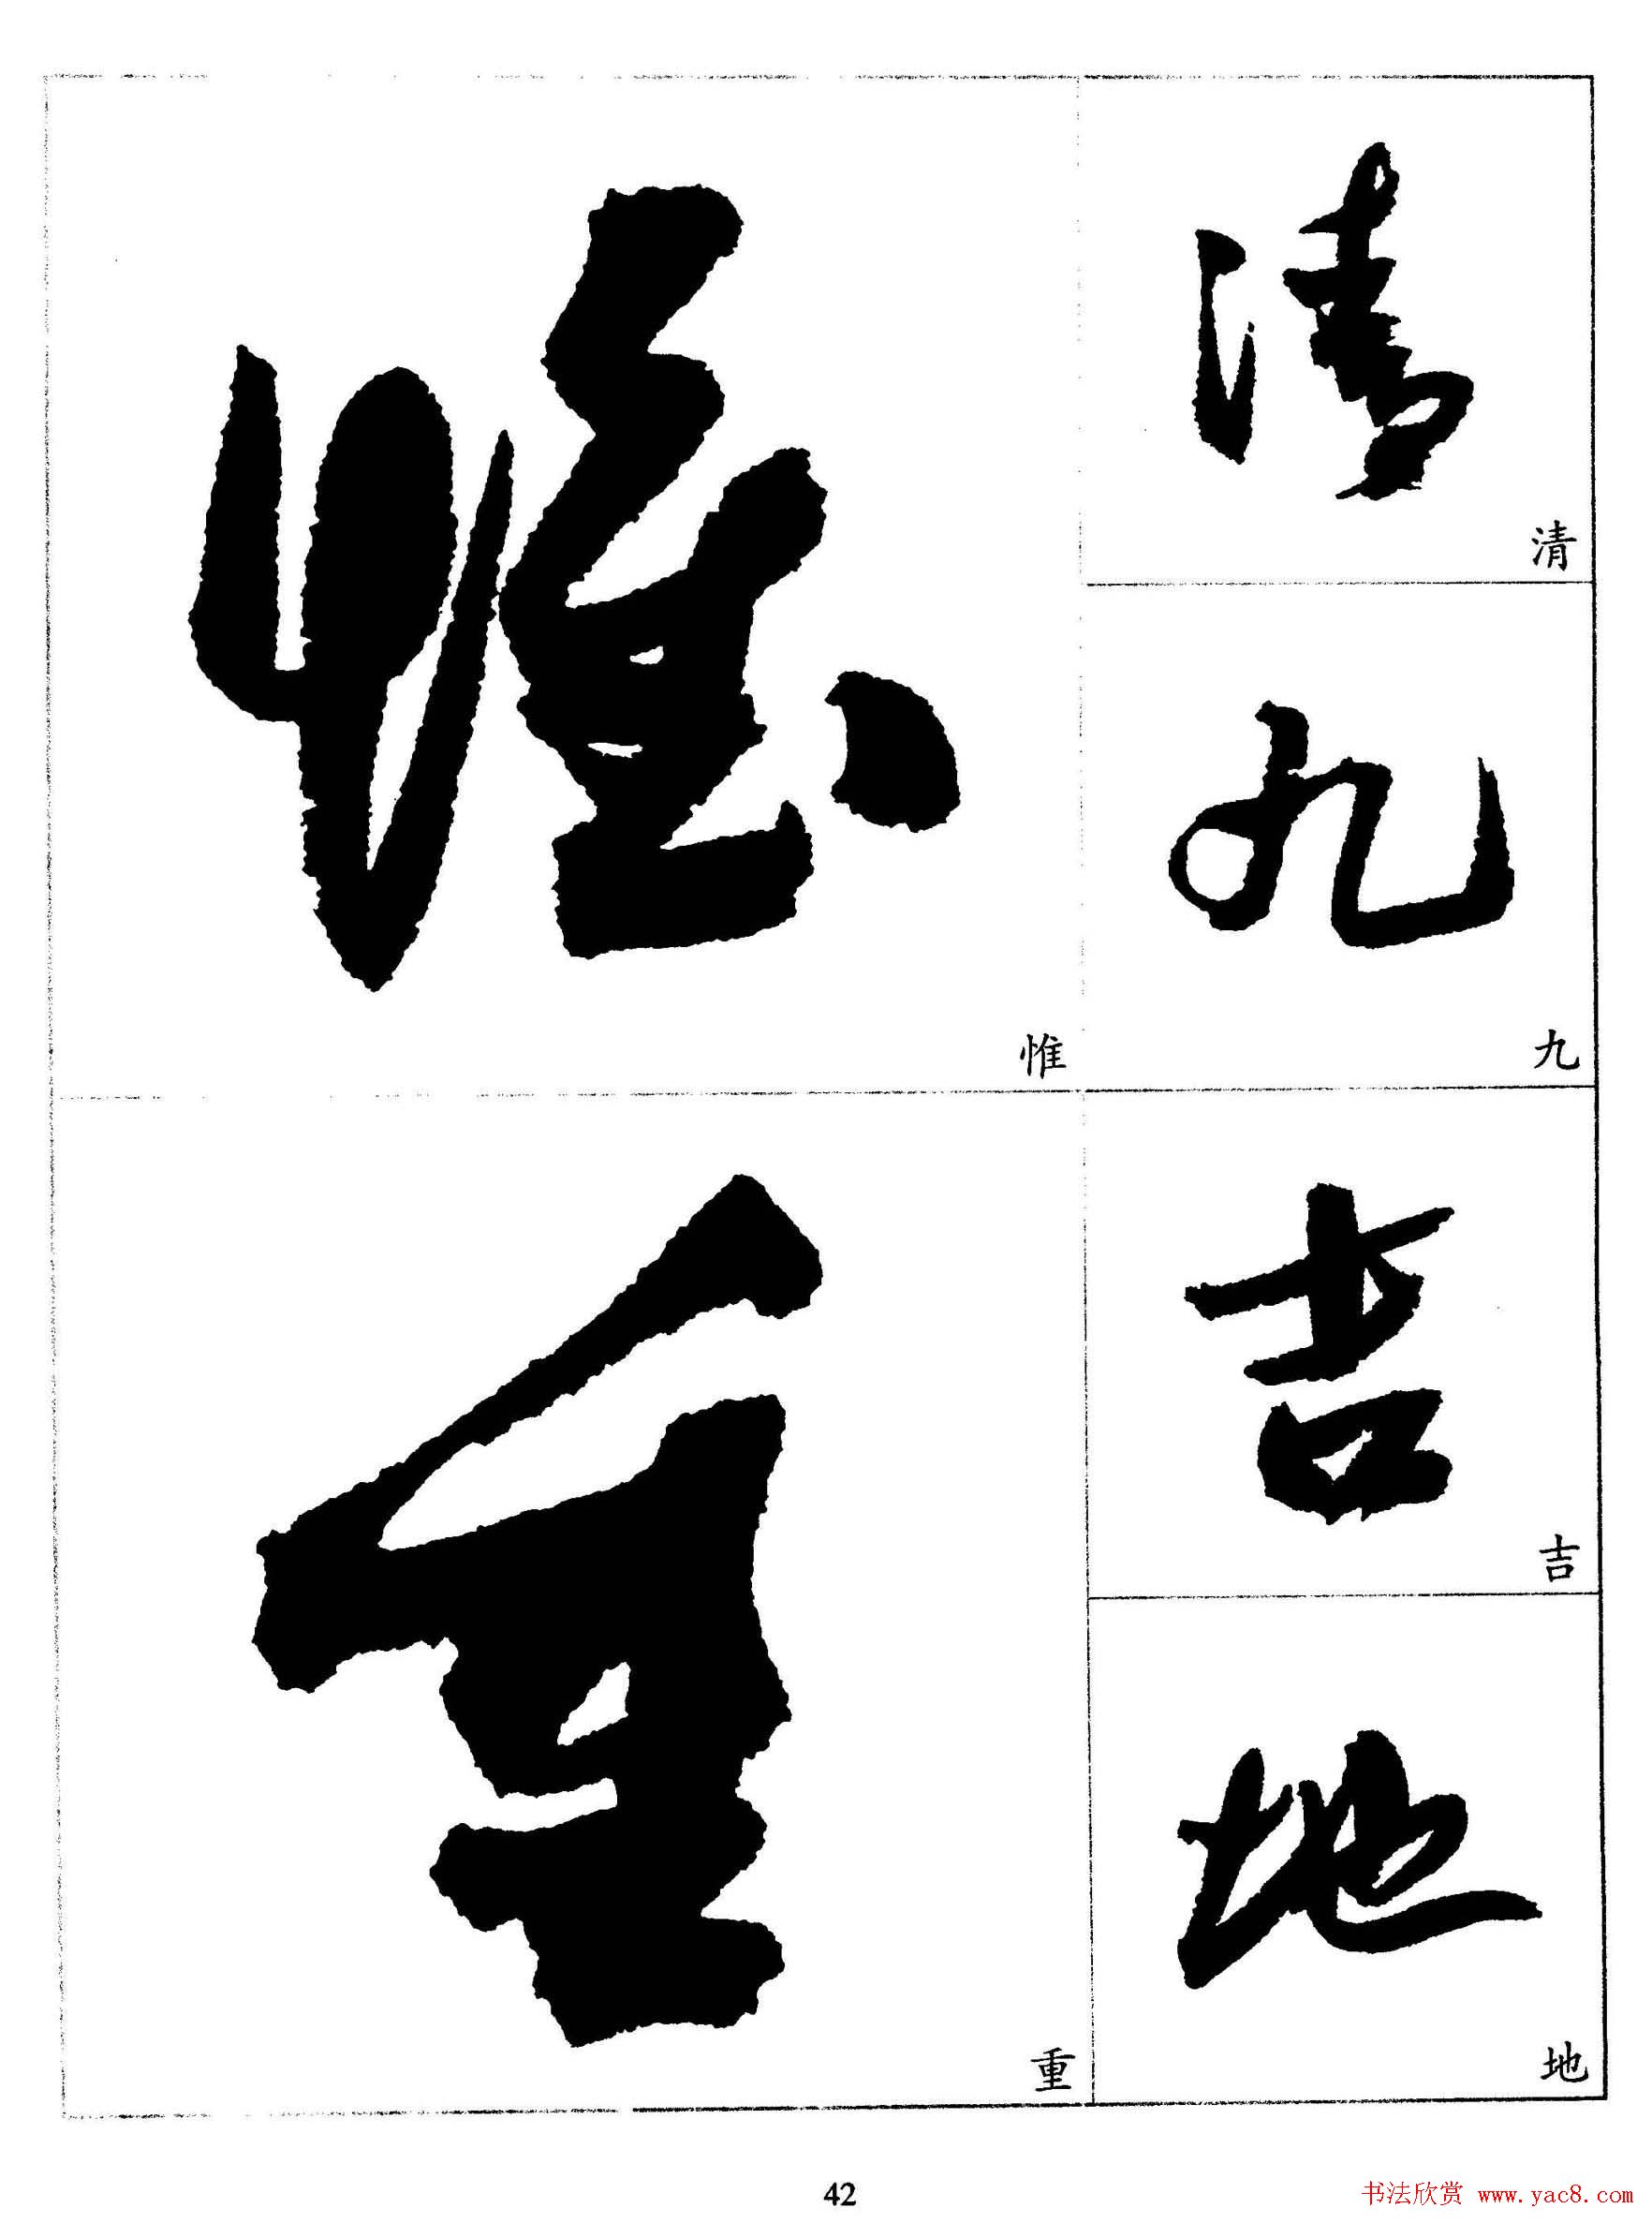 清
清
九
九
吉
吉
地
地
惟
惟
重
重
42
书法欣赏 www.yac8.com